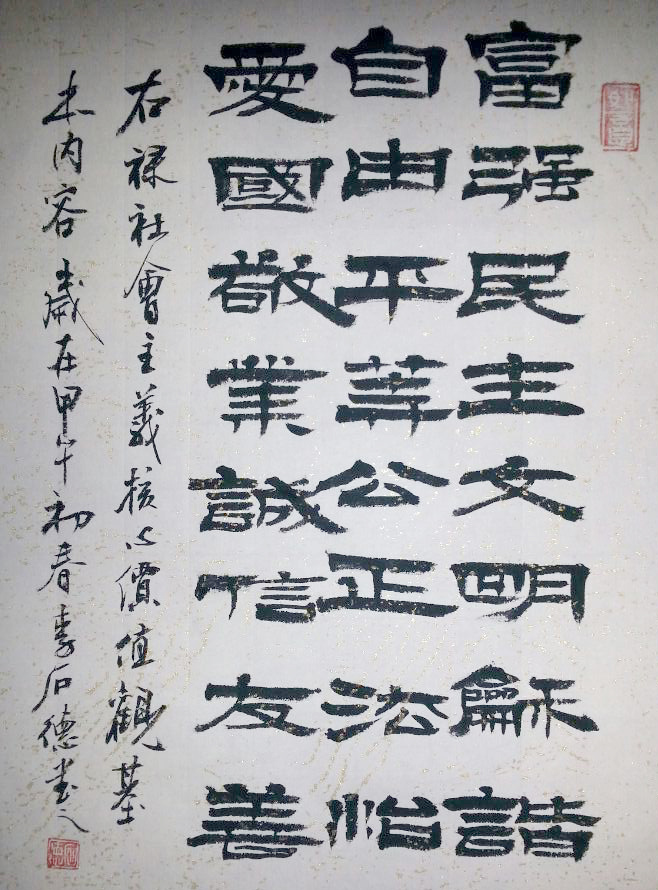 富强民主文明龢諧
自由平等公正法怡
愛國敬業誠信友善
右禄社會主義核心價值觀基
本内容歲在甲午初春李石德書